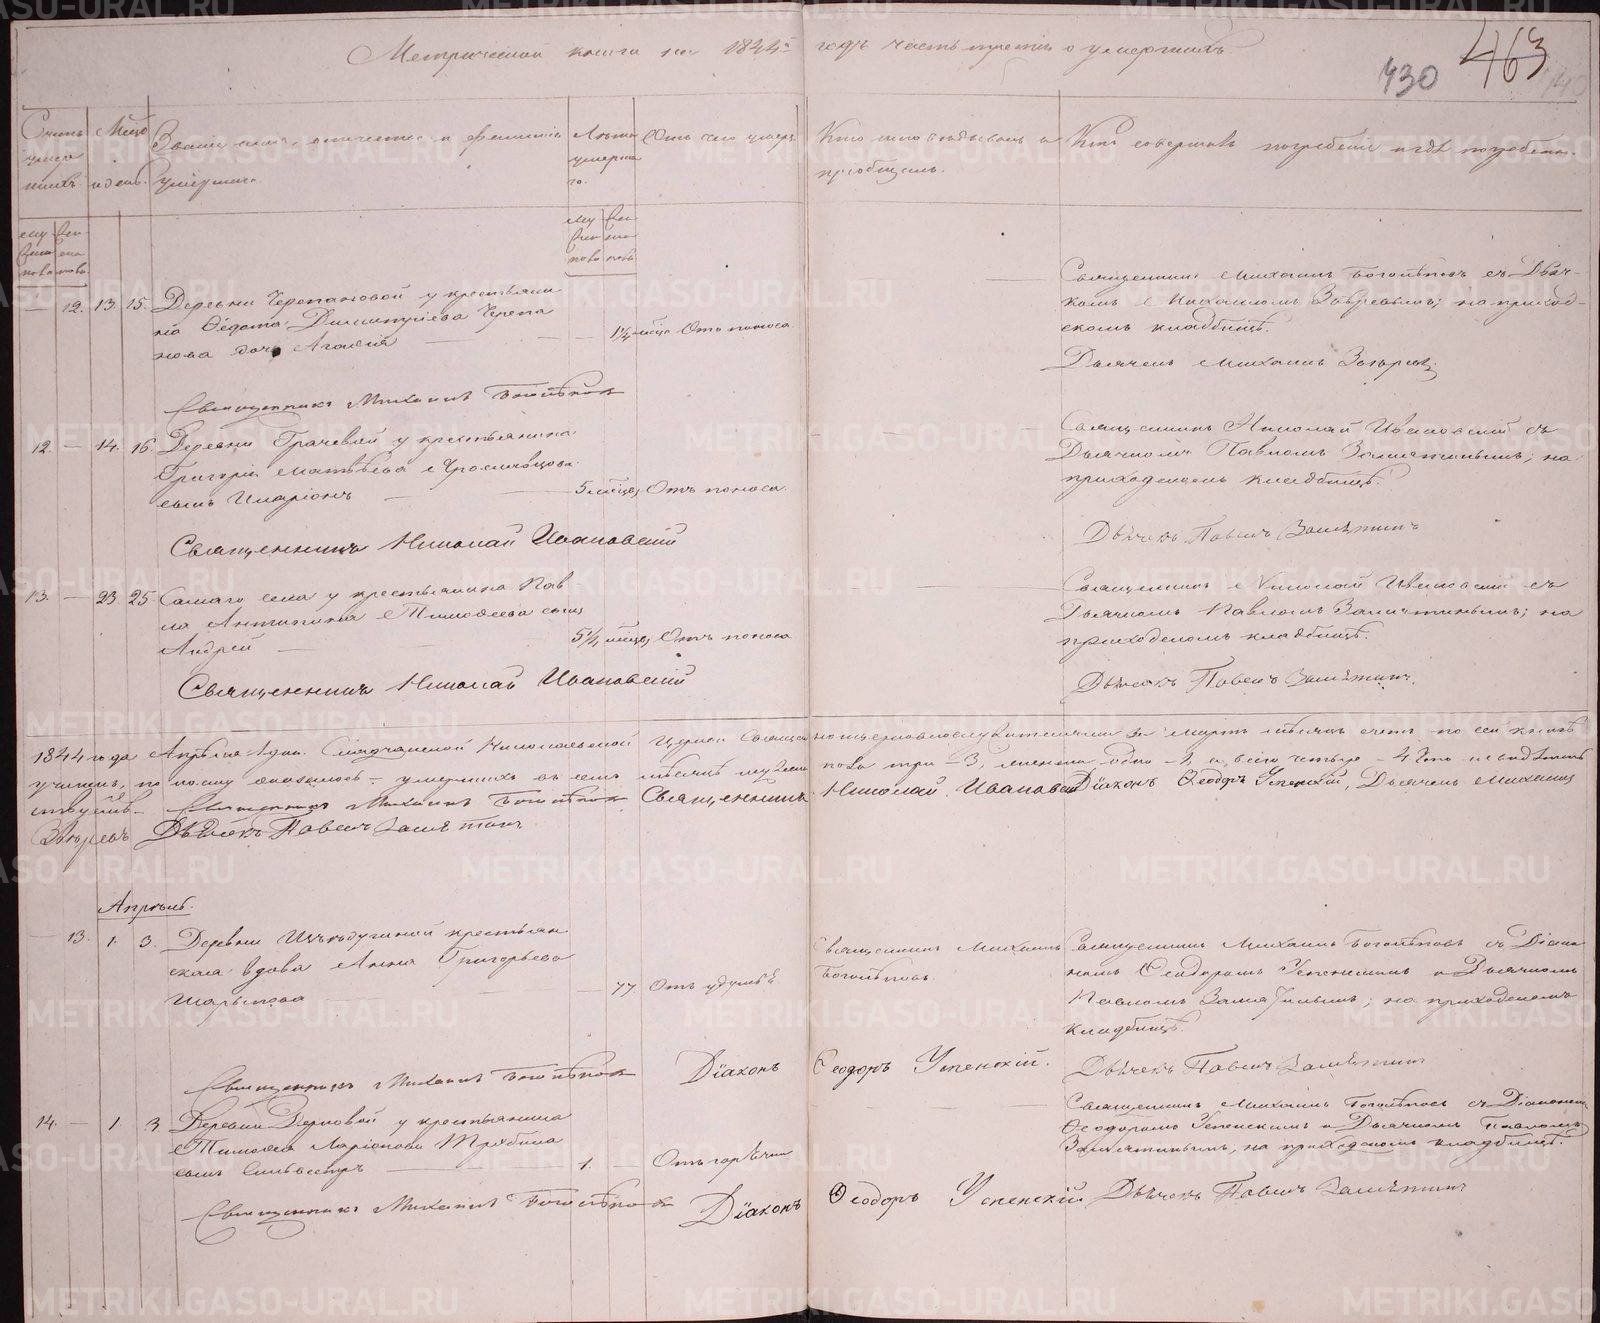 Метрической книги на 1844й годъ часть третiя о умершихъ
430 463
Счетъ умершихъ.
Мѣсяцъ и день.
Званiе, имя, отчество и фамилiя умершаго.
Лѣта умершаго.
Отъ чего умеръ
Кто исповѣдывалъ и прiобщалъ.
Кто совершалъ погребенiе и гдѣ погребены.
Мужеска пола
женска пола.
Мужеска пола
женска пола
— 12. 13. 15. Деревни Черепановой у крестьяни-
на Ѳедота Димитрiева Черепа
нова дочь Агафiя — — 1¼ мѣсяц. Отъ поноса. —
Священникъ Михаилъ Боголѣповъ съ Дьяч-
комъ Михаиломъ Зыревымъ; на приход-
скомъ кладбищѣ.
Дьячекъ Михаилъ Зыревъ
Священникъ Михаилъ Боголѣповъ
12. — 14. 16. Деревни Грачевой у крестьянина
Григорiя Матвѣева
сынъ Иларiонъ — 5 мѣсяц. Отъ поноса. —
Священникъ Николай Ивановскiй съ
Дьячкомъ Павломъ Замятинымъ; на
приходскомъ кладбищѣ.
Священникъ Николай Ивановскiй
Дьячекъ Павелъ Замятинъ
13. — 23. 25 Самаго села у крестьянина Пав-
ла Антипина Тимофеева сынъ
Андрей — 5¼ мѣсяц. Отъ поноса —
Священникъ Николай Ивановскiй съ
Дьячкомъ Павломъ Замятинымъ; на
приходскомъ кладбищѣ.
Священникъ Николай Ивановскiй
Дьячекъ Павелъ Замятинъ.
1844 года Апрѣля 1 дня. Николаевской Церкви Священноцерковнослужителями за мартъ мѣсяцъ счетъ по сей книгѣ
учиненъ, по коему оказалось умершихъ въ семъ мѣсяцѣ мужеска пола три - 3, женска одна - 1, а всего четыре - 4
Священникъ Михаилъ Боголѣповъ Священникъ Николай Ивановскiй Дiаконъ Ѳеодоръ Успенскiй, Дьячекъ Михаилъ
Зыревъ Дьячекъ Павелъ Замятинъ
Апрѣль.
— 13. 1. 3. Деревни крестьян-
ская вдова Анна Григорьева
Шарыпова — — 77. Отъ удушья
Священникъ Михаилъ
Боголѣповъ.
Священникъ Михаилъ Боголѣповъ съ Дiако-
номъ Ѳеодоромъ Успенскимъ и Дьячкомъ
Павломъ Замятинымъ; на приходскомъ
кладбищѣ.
Священникъ Михаилъ Боголѣповъ Дiаконъ Ѳеодоръ Успенскiй. Дьячекъ Павелъ Замятинъ
14. — 1 3 Деревни у крестьянина
Тимофея Ларiонова
сынъ Сильвестръ — 1. — Отъ горячки —
Священникъ Михаилъ Боголѣповъ съ Дiакономъ
Ѳеодоромъ Успенскимъ и Дьячкомъ Павломъ
Замятинымъ, на приходскомъ кладбищѣ.
Священникъ Михаилъ Боголѣповъ Дiаконъ Ѳеодоръ Успенскiй Дьячекъ Павелъ Замятинъ
METRIKI.GASO-URAL.RU